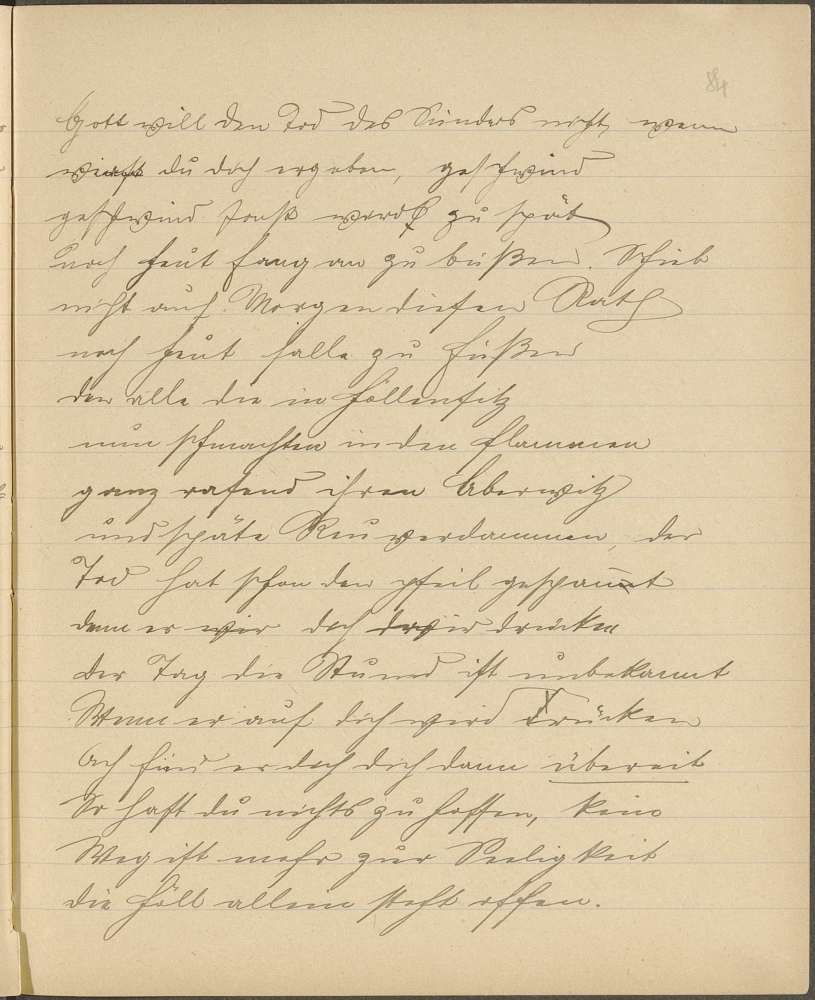 84
Gott will den Tod des Sünders nicht, wenn
wirst du dich ergeben, geschwind
geschwind sonst wirds zu spät
noch heut fang an zu büßen. Schieb
nicht auf Morgen diesen Rath
noch heut falle zu Füßen
den alle die in Höllensitz
nun schmachten in den flammen
ganz rasend ihren Aberwitz
und späte Reu verdammen, der
Tod hat schon den pfeil gespannt
denn er wir dich drücken
der Tag die Stund ist unbekannt
Wenn er auf dich wird drücken
Ach find er doch dich dann übereit
So hast du nichts zu hoffen, kein
Weg ist mehr zur Seeligkeit
die Höll allein steht offen.